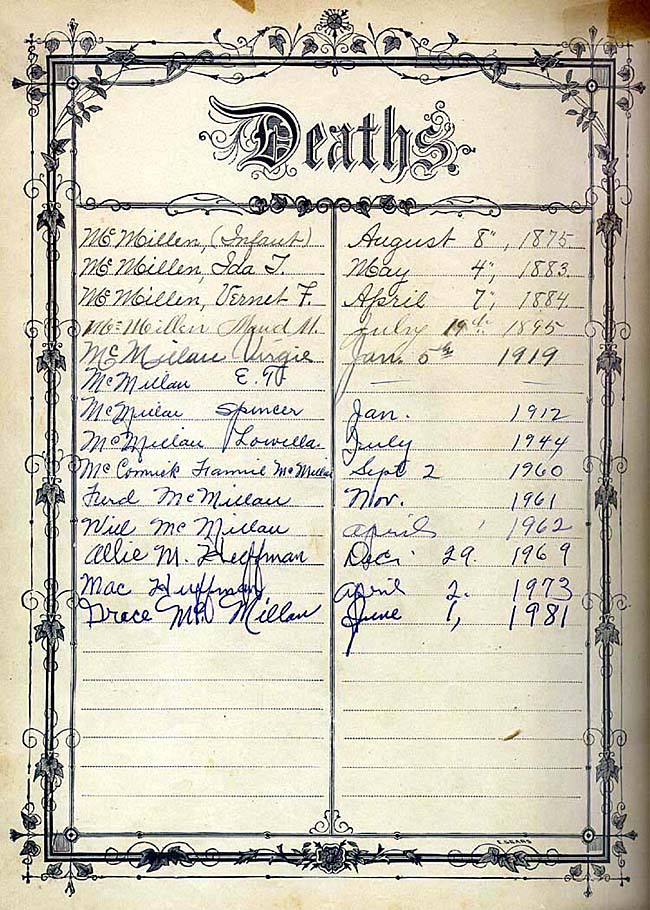 Deaths.
McMillen, (Infant) August 8", 1875
McMillen, Ida T. May 4", 1883
McMillen, Vernet F. April 7", 1884
McMillen Maud M. July 19th 1895
McMillan Virgie Jan. 5th 1919
McMillan E. T. — —
McMillan Spencer Jan. 1912
McMillan Lowella. July 1944
McCormick Fannie McMillan Sept 2 1960
Furd McMillan Nov. 1961
Will McMillan April 1962
Allie M. Huffman Dec. 29. 1969
Mac Huffman April 2. 1973
Grace McMillan June 1, 1981
E.SEARS